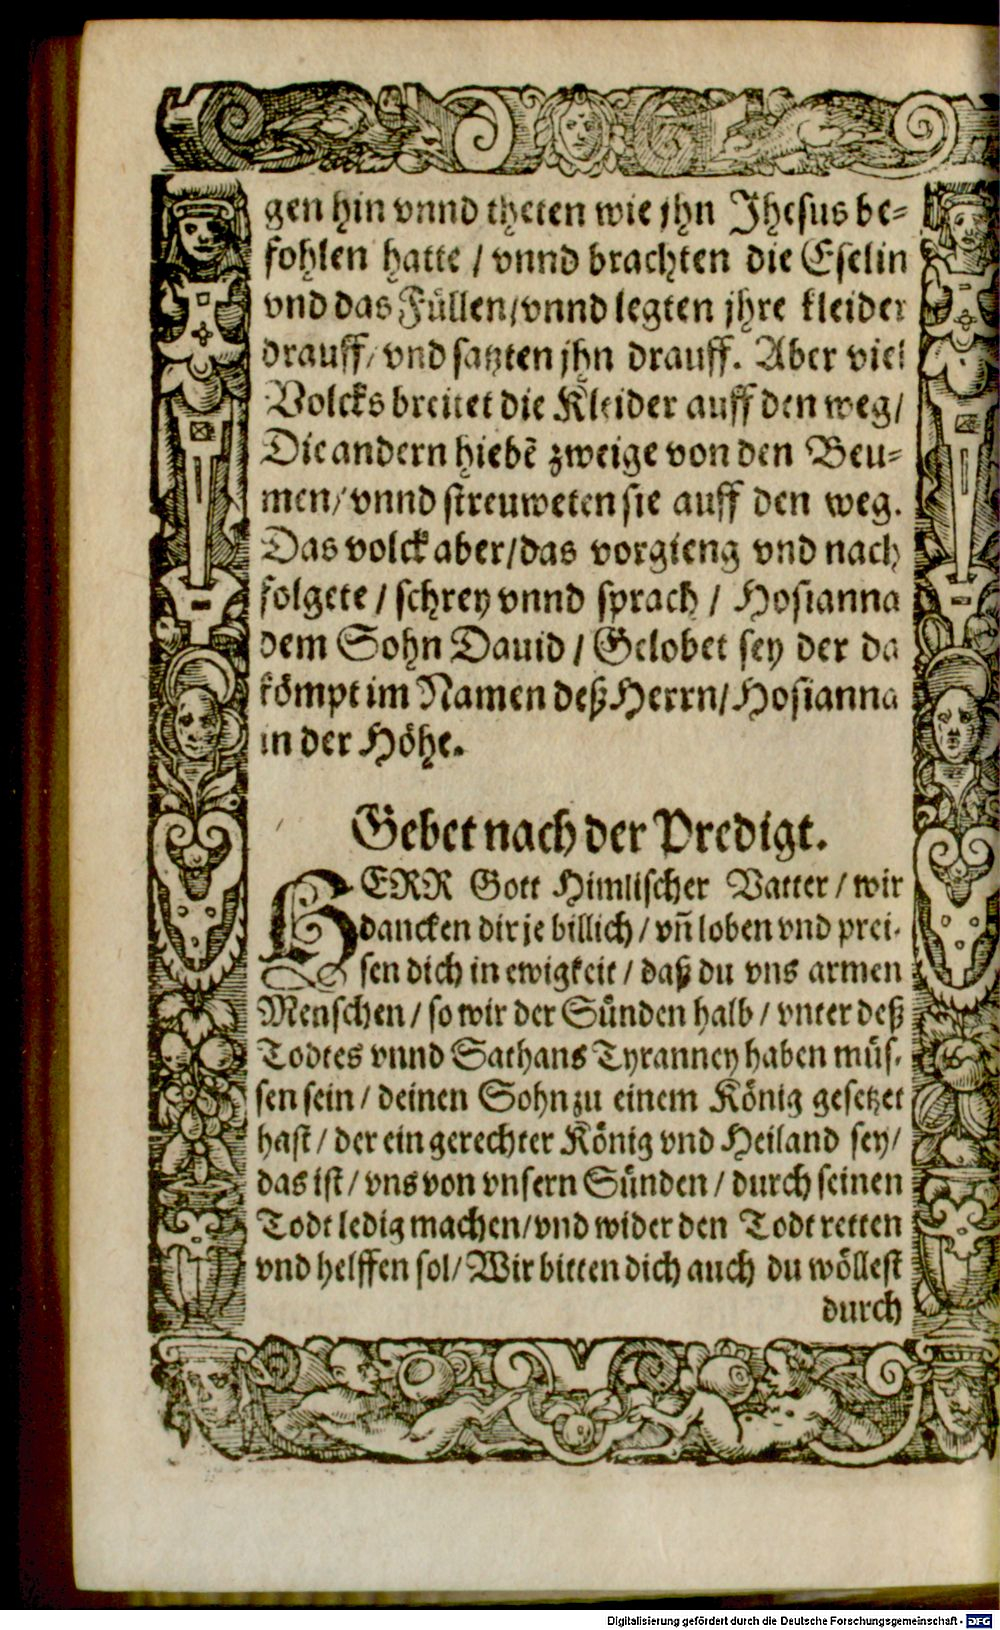 gen hin vnnd theten wie jhn Jhesus be⸗
fohlen hatte / vnnd brachten die Eselin
vnd das Fuͤllen/vnnd legten jhre kleider
drauff/ vnd satzten jhn drauff. Aber viel
Volcks breitet die Kleider auff den weg/
Die andern hiebẽ zweige von den Beu⸗
men/ vnnd streuweten sie auff den weg.
Das volck aber/das vorgieng vnd nach
folgete / schrey vnnd sprach / Hosianna
dem Sohn Dauid / Gelobet sey der da
koͤmpt im Namen deß Herrn/ Hosianna
in der Hoͤhe.
Gebet nach der Predigt.
HERR Gott Himlischer Vatter / wir
dancken dir je billich / vñ loben vnd prei⸗
sen dich in ewigkeit / daß du vns armen
Menschen / so wir der Suͤnden halb / vnter deß
Todtes vnnd Sathans Tyranney haben muͤs⸗
sen sein / deinen Sohn zu einem Koͤnig gesetzet
hast / der ein gerechter Koͤnig vnd Heiland sey/
das ist / vns von vnsern Suͤnden / durch seinen
Todt ledig machen/vnd wider den Todt retten
vnd helffen sol/ Wir bitten dich auch du woͤllest
durch
Digitalisierung gefördert durch die Deutsche Forschungsgemeinschaft - DFG